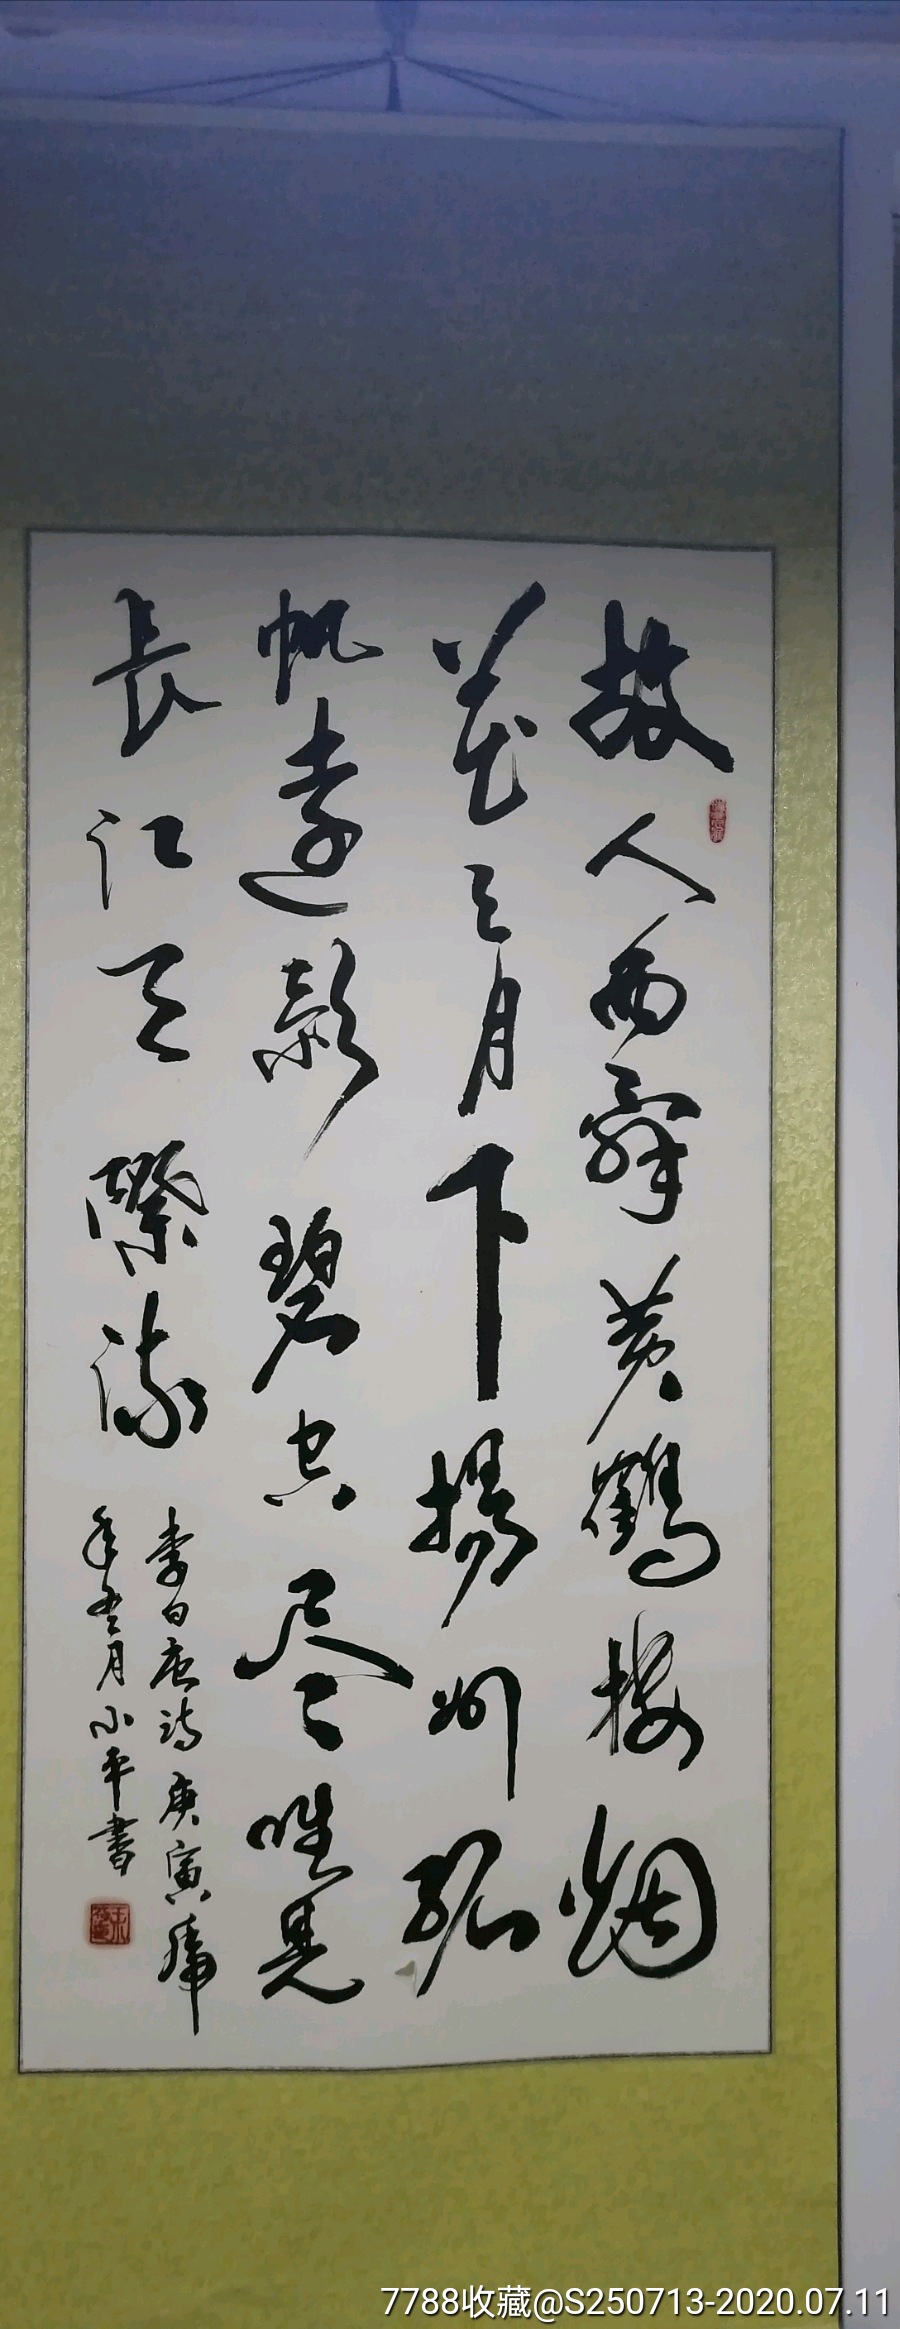 故人西辞黄鹤楼烟
花三月下揚州孤
帆遠影碧空尽唯見
長江天際流
李白唐诗庚寅虎
年五月小平書
7788收藏@S250713-2020.07.11